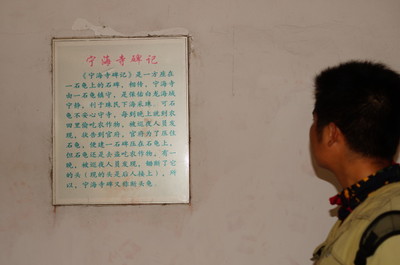 宁海寺碑记
《宁海寺碑记》是一方座在
一石龟上的石碑，相传，宁海寺
由一石龟镇守，是保佑白龙海域
宁静，利于珠民下海采珠，可石
龟不安心守寺，每到晚上就到农
田里偷吃农作物，被巡夜人员发
现，状告到官府，官府为了压住
石龟，便建一石碑压在石龟上，
但石龟还是去盗吃农作物，有一
晚，被巡夜人员发现，砍断了它
的头（现的头是后人接上），所
以，宁海寺碑又称断头龟